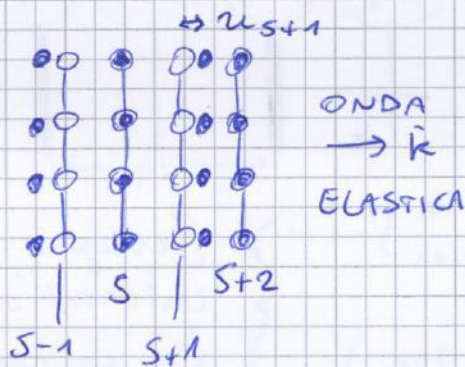 ↔ u s+1
ONDA
→ k
ELASTICA
S
S+2
S-1
S+1